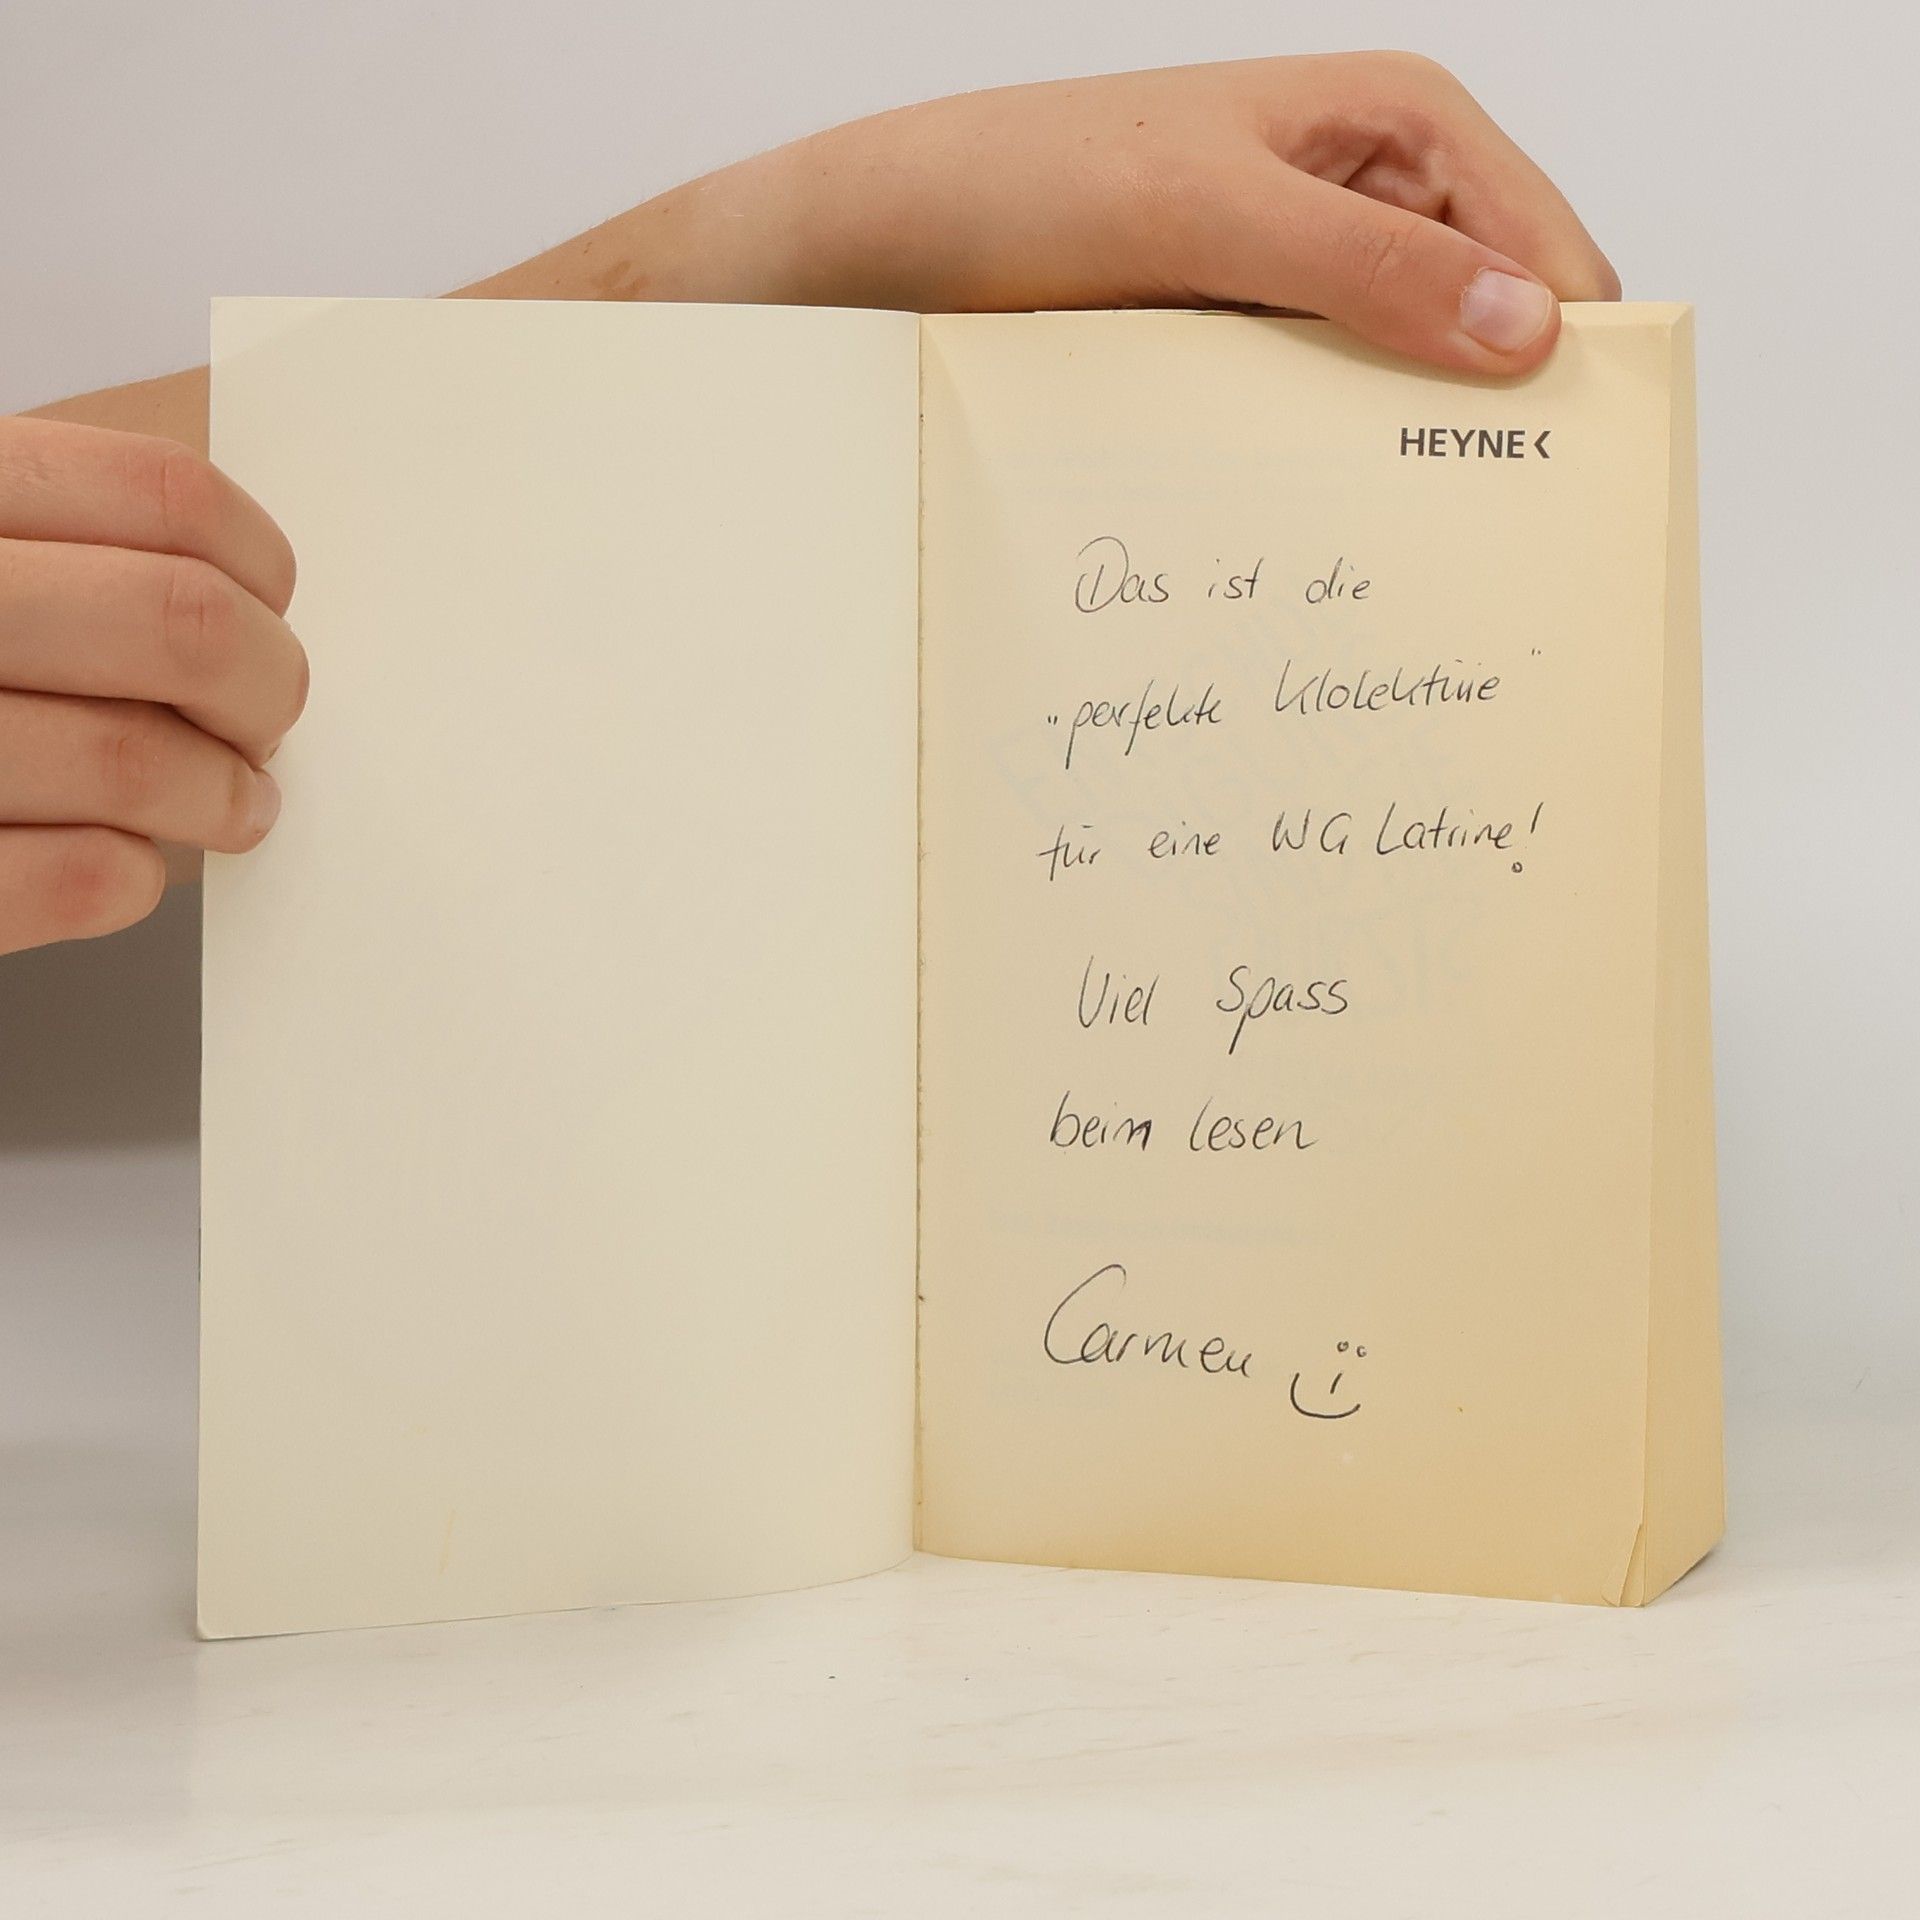 HEYNE<
Das ist die
"perfekte Klolektüre"
für eine WG Latrine!
Viel Spass
beim lesen
Carmen